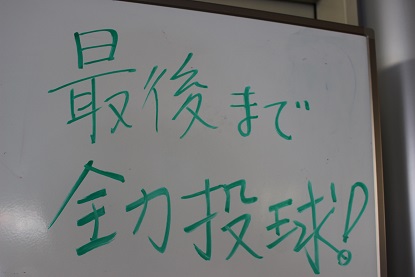 最後まで
全力投球!